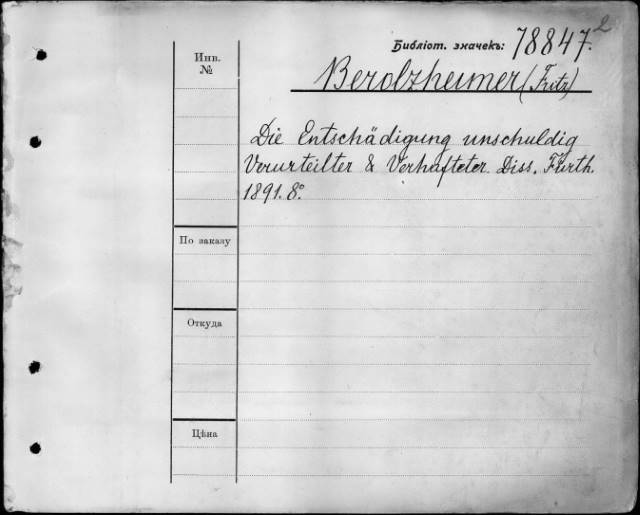 2
Библіот. значекъ: 78847.
Инв.
№
Berolzheimer (Fritz)
Die Entschädigung unschuldig
Verurteilter & Verhafteter. Diss. Fürth.
1891. 8º.
По заказу
Откуда
Цѣна